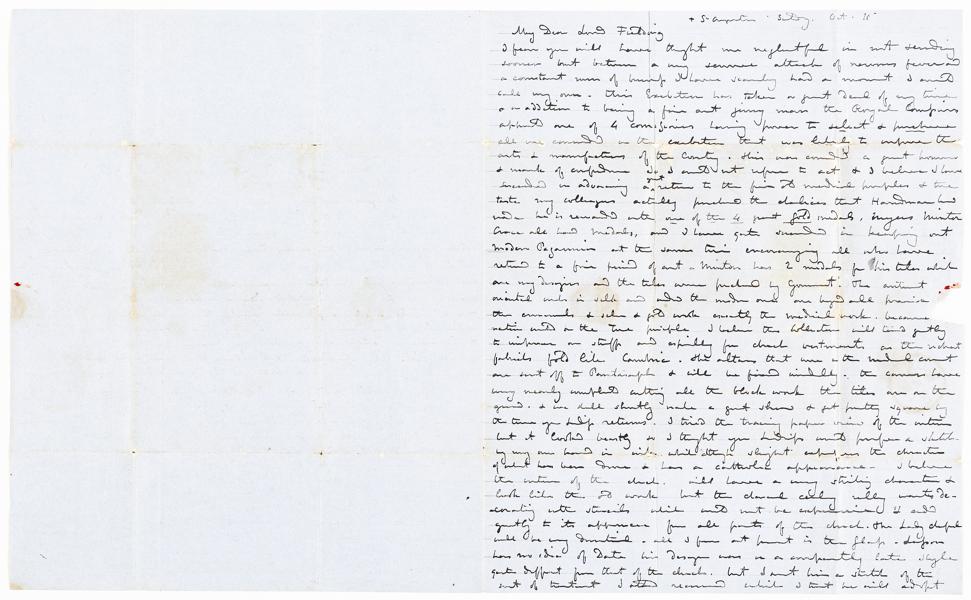 + St Augustine Sunday. Oct. 18
My Dear Lord Feilding
I fear you will have thought me neglectful in not sending
sooner but between a very severe attack of nervous fever and
a constant run of I have scarcely had a moment I could
call my own. this Exhibition has taken a great deal of my time
in addition to being a fine art jury man the Royal Commission
appointd one of 4 having power to select & purchase
all in the exhibition that was likely to improve the
arts & manufactures of the Country. this was a great honour
& mark of confidence so I could not refuse to act & I believe I have
succeeded in advancing a great return to the fine old medieval principles & true
taste my colleagues actually purchased the chalices that Hardman had
made he is rewarded with one of the 4 great gold medals, Myers Minton
Crace all had medals, and I have quite succeeded in keeping out
modern Paganism at the same time encouraging all who have
returnd to a fine period of art. Minton has 2 medals for his tiles which
are my designs and the tales were purchased by Goverment. the ancient
oriental work in silk and the modern ones are based
the enamels & silver & gold work exactly the medieval work. because
on the True principle. I believe this Collection will tend greatly
to improve our stuffs and especially for church vestments as the richest
fabricks fold like Cambric. the altars that were in the medieval court
are sent off to Pantasaph & will be fixed immediately. the carvers have
very nearly completed cutting all the block work the tiles are on the
ground. & we shall shortly make a great show & get pretty square by
the time your Ldship returns. I tried the tracing paper view of the interior
but it looked beastly so I thought your Ldship would prefer a sketch
by my own hand in which although slight the character
of what has been done & has a catholic appearance. I believe
the interior of the church. will have a very striking character &
look like the old work but the chancel ceiling really wants de-
corating with stencils which would not be expensive & add
greatly to its appearance from all parts of the church. the Lady chapel
will be very beautiful. all I fear at present is the Glass.
has no idea of Date his Design was in a comparatively late style
quite different from that of the church. but I sent him a sketch of the
sort of treatment I should recommend which I trust he will adopt